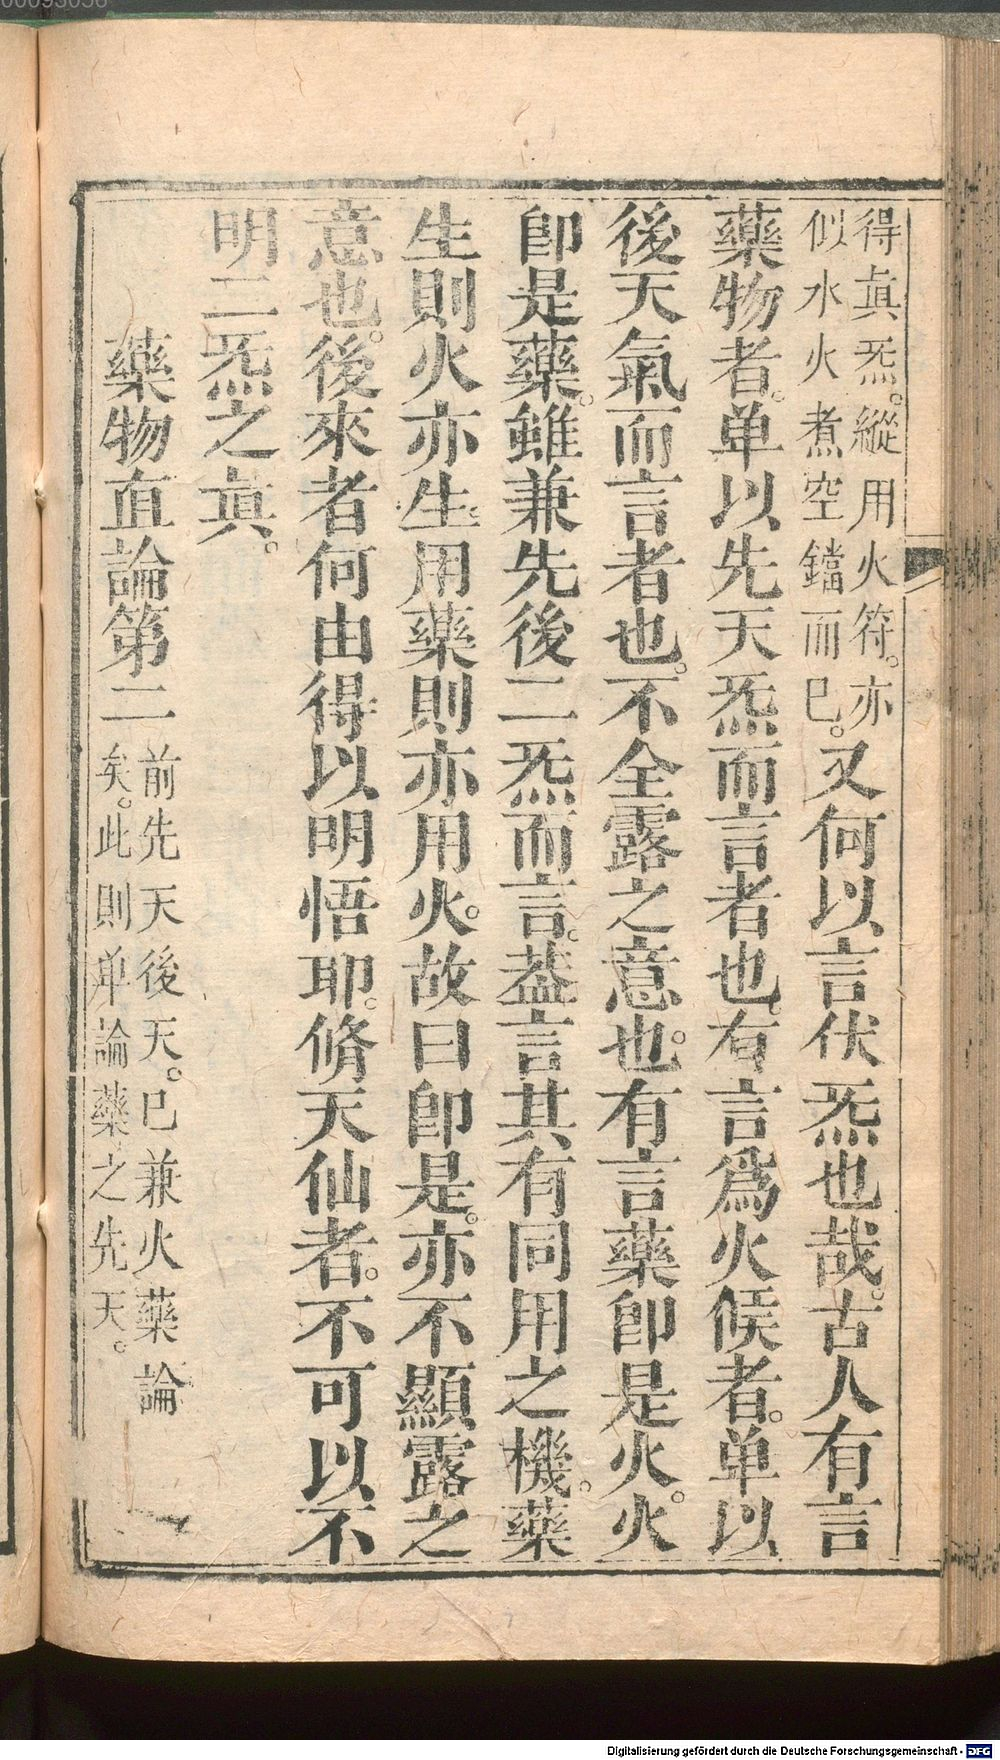 00093056
得眞炁。縱用火符。亦
似水火煮空鐺而已。又何以言伏炁也哉。古人有言
藥物者。单以先天炁而言者也。有言爲火候者。单以
後天氣而言者也。不全露之意也。有言藥卽是火。火
卽是藥。雖兼先後二炁而言。葢言其有同用之機。藥
生則火亦生。用藥則亦用火。故曰卽是。亦不顯露之
意也。後來者何由得以明悟耶。脩天仙者。不可以不
明二炁之眞。
藥物直論第二
前先天後天。已兼火藥論
矣。此則单論藥之先天。
Digitalisierung gefördert durch die Deutsche Forschungsgemeinschaft - DFG